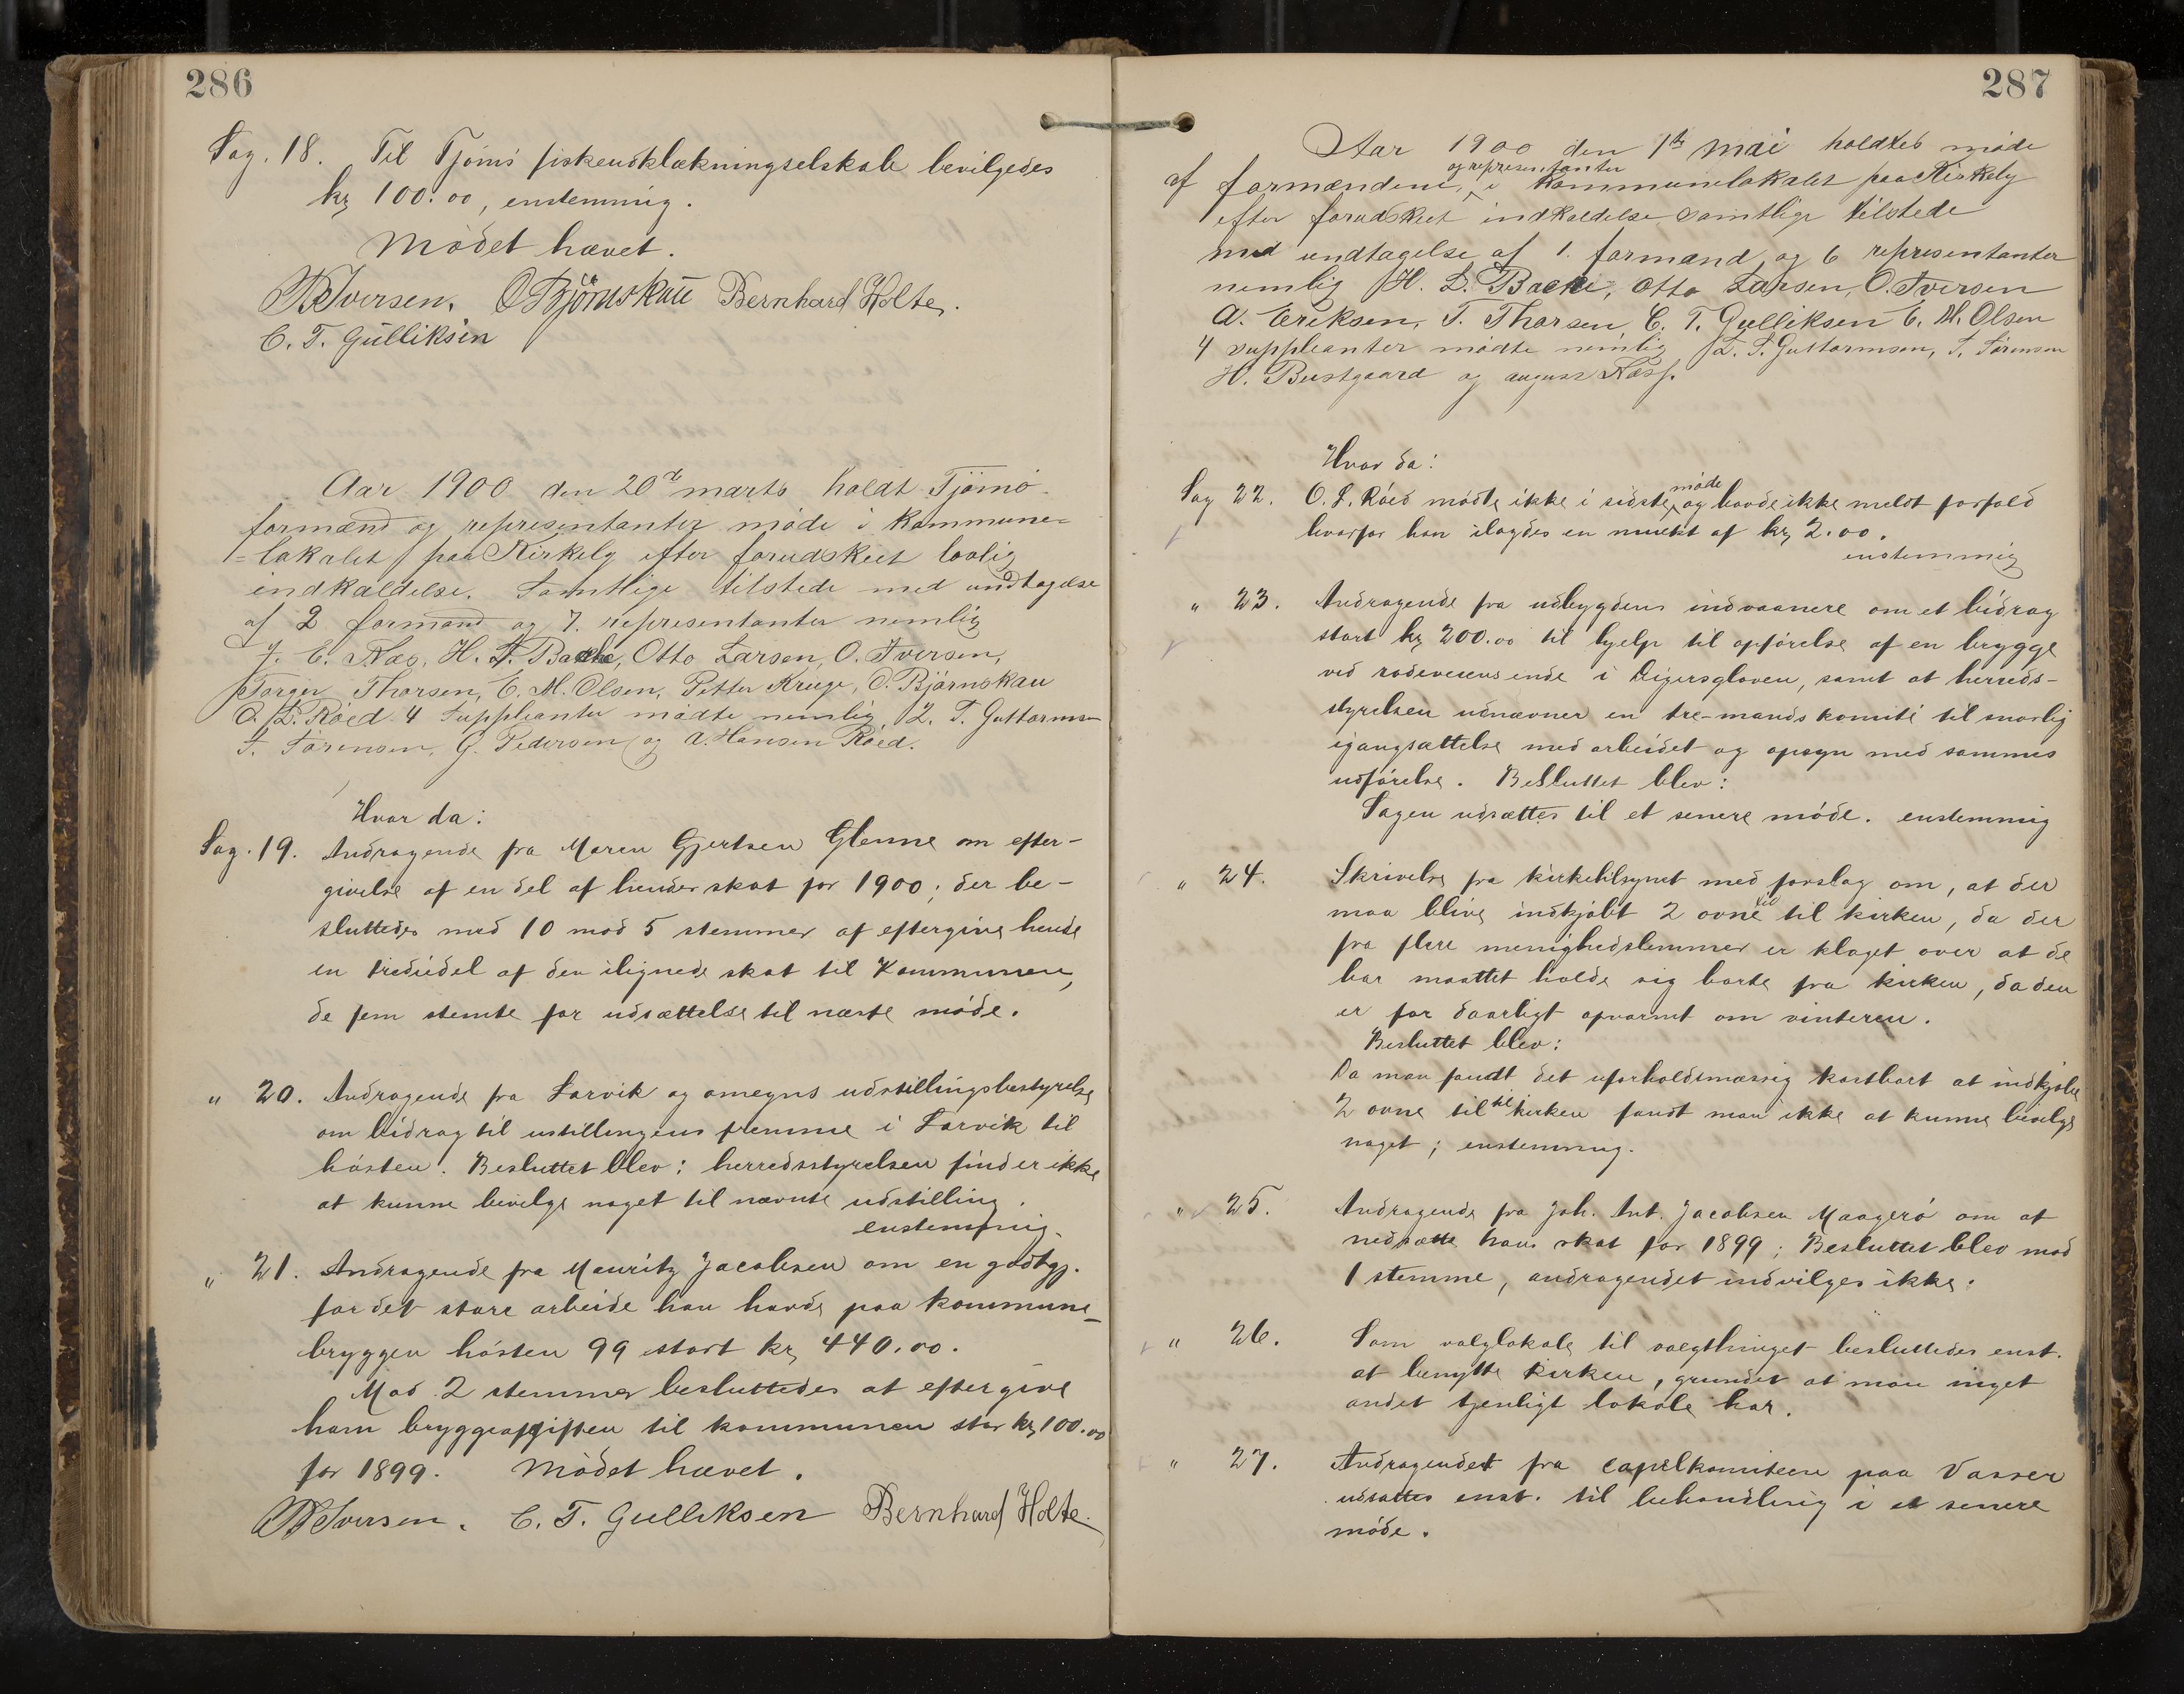 286
Sag. 18. Til Tjømø fiskeudklækningselskab bevilgedes
kr 100.00, enstemmig.
Mødet hævet.
B Iversen. O Bjørnskau Bernhard Holte.
C. T. Gulliksen
Aar 1900 den 20de marts holdt Tjømø
formænd og representanter møde i kommune=
=lokalet paa Kirkely efter forudskeet lovlig
indkaldelse. Samtlige tilstede med undtagelse
af 2 formænd og 7. representanter nemlig
J. C. Næs, H. L. Bache, Otto Larsen, O. Iversen,
Torger Thorsen, C. M. Olsen, Petter Krüge, O. Bjørnskau
O. L. Røed 4 suppleanter mødte nemlig, L. T. Guttormsen
S. Sørensen, G. Pedersen og A. Hansen Røed.
Hvor da:
Sag. 19. Andragende fra Maren Gjertsen Glenne om efter-
givelse af en del af hendes skat for 1900; der be-
sluttedes med 10 mod 5 stemmer at eftergive hende
en trediedel af den ilignede skat til Kommunen,
de fem stemte for udsættelse til næste møde.
" 20. Andragende fra Larvik og omegns udstillingsbestyrelse
om bidrag til ustillingens fremme i Larvik til
høsten. Besluttet blev: herredsstyrelsen finder ikke
at kunne bevilge noget til nævnte udstilling.
enstemmig.
" 21. Andragende fra Mauritz Jacobsen om en godtgj.
for det store arbeide han havde paa kommune-
bryggen høsten 99 stort kr 440.00.
Mod 2 stemmer besluttedes at eftergive
ham bryggeafgiften til kommunen stor kr 100.00
for 1899. Mødet hævet.
B Iversen. C. T. Gulliksen Bernhard Holte.
287
Aar 1900 den 1ste mai holdtes møde
af formændene, og representanter i Kommunelokalet paa Kirkely
efter forudskeet indkaldelse samtlige tilstede
med undtagelse af 1. formand, og 6 representanter
nemlig H. L. Bache, Otto Larsen, O. Iversen
A. Eriksen, T. Thorsen, C. T. Gulliksen C. M. Olsen
4 suppleanter mødte nemlig L. T. Guttormsen, S. Sørensen
H. Bustgaard og august Næss.
Hvor da:
Sag 22. O. L. Røed mødte ikke i sidste møde og havde ikke meldt forfald
hvorfor han ilagdes en mulkt af kr 2.00.
enstemmig
" 23. Andragende fra udbygdens indvaanere om et bidrag
stort kr 200.00 til hjelp til opførelse af en brygge
ved rodeveiens ende i Digersgloven, samt at herreds-
styrelsen udnævner en tre-mands komité til snarlig
igangsættelse med arbeidet og opsyn med sammes
udførelse. Besluttet blev:
Sagen udsættes til et senere møde. enstemmig
" 24. Skrivelse fra kirketilsynet med forslag om, at der
maa blive indkjøbt 2 ovne til til kirken, da der
fra flere menighedslemmer er klaget over at de
har maattet holde sig borte fra kirken, da den
er for daarligt opvarmt om vinteren.
Besluttet blev:
Da man fandt det uforholdsmæssig kostbart at indkjøbe
2 ovne til til kirken fandt man ikke at kunne bevilge
noget; enstemmig.
" 25. Andragende fra Joh. Ant. Jacobsen Maagerø om at
nedsætte hans skat for 1899; Besluttet blev mod
1 stemme, andragendet indvilges ikke.
" 26. Som valglokale til valgthinget besluttedes enst.
at benytte kirken, grundet at man inget
andet tjenligt lokale har.
" 27. Andragendet fra capelkomiteen paa Vasser
udsattes enst. til behandling i et senere
møde.